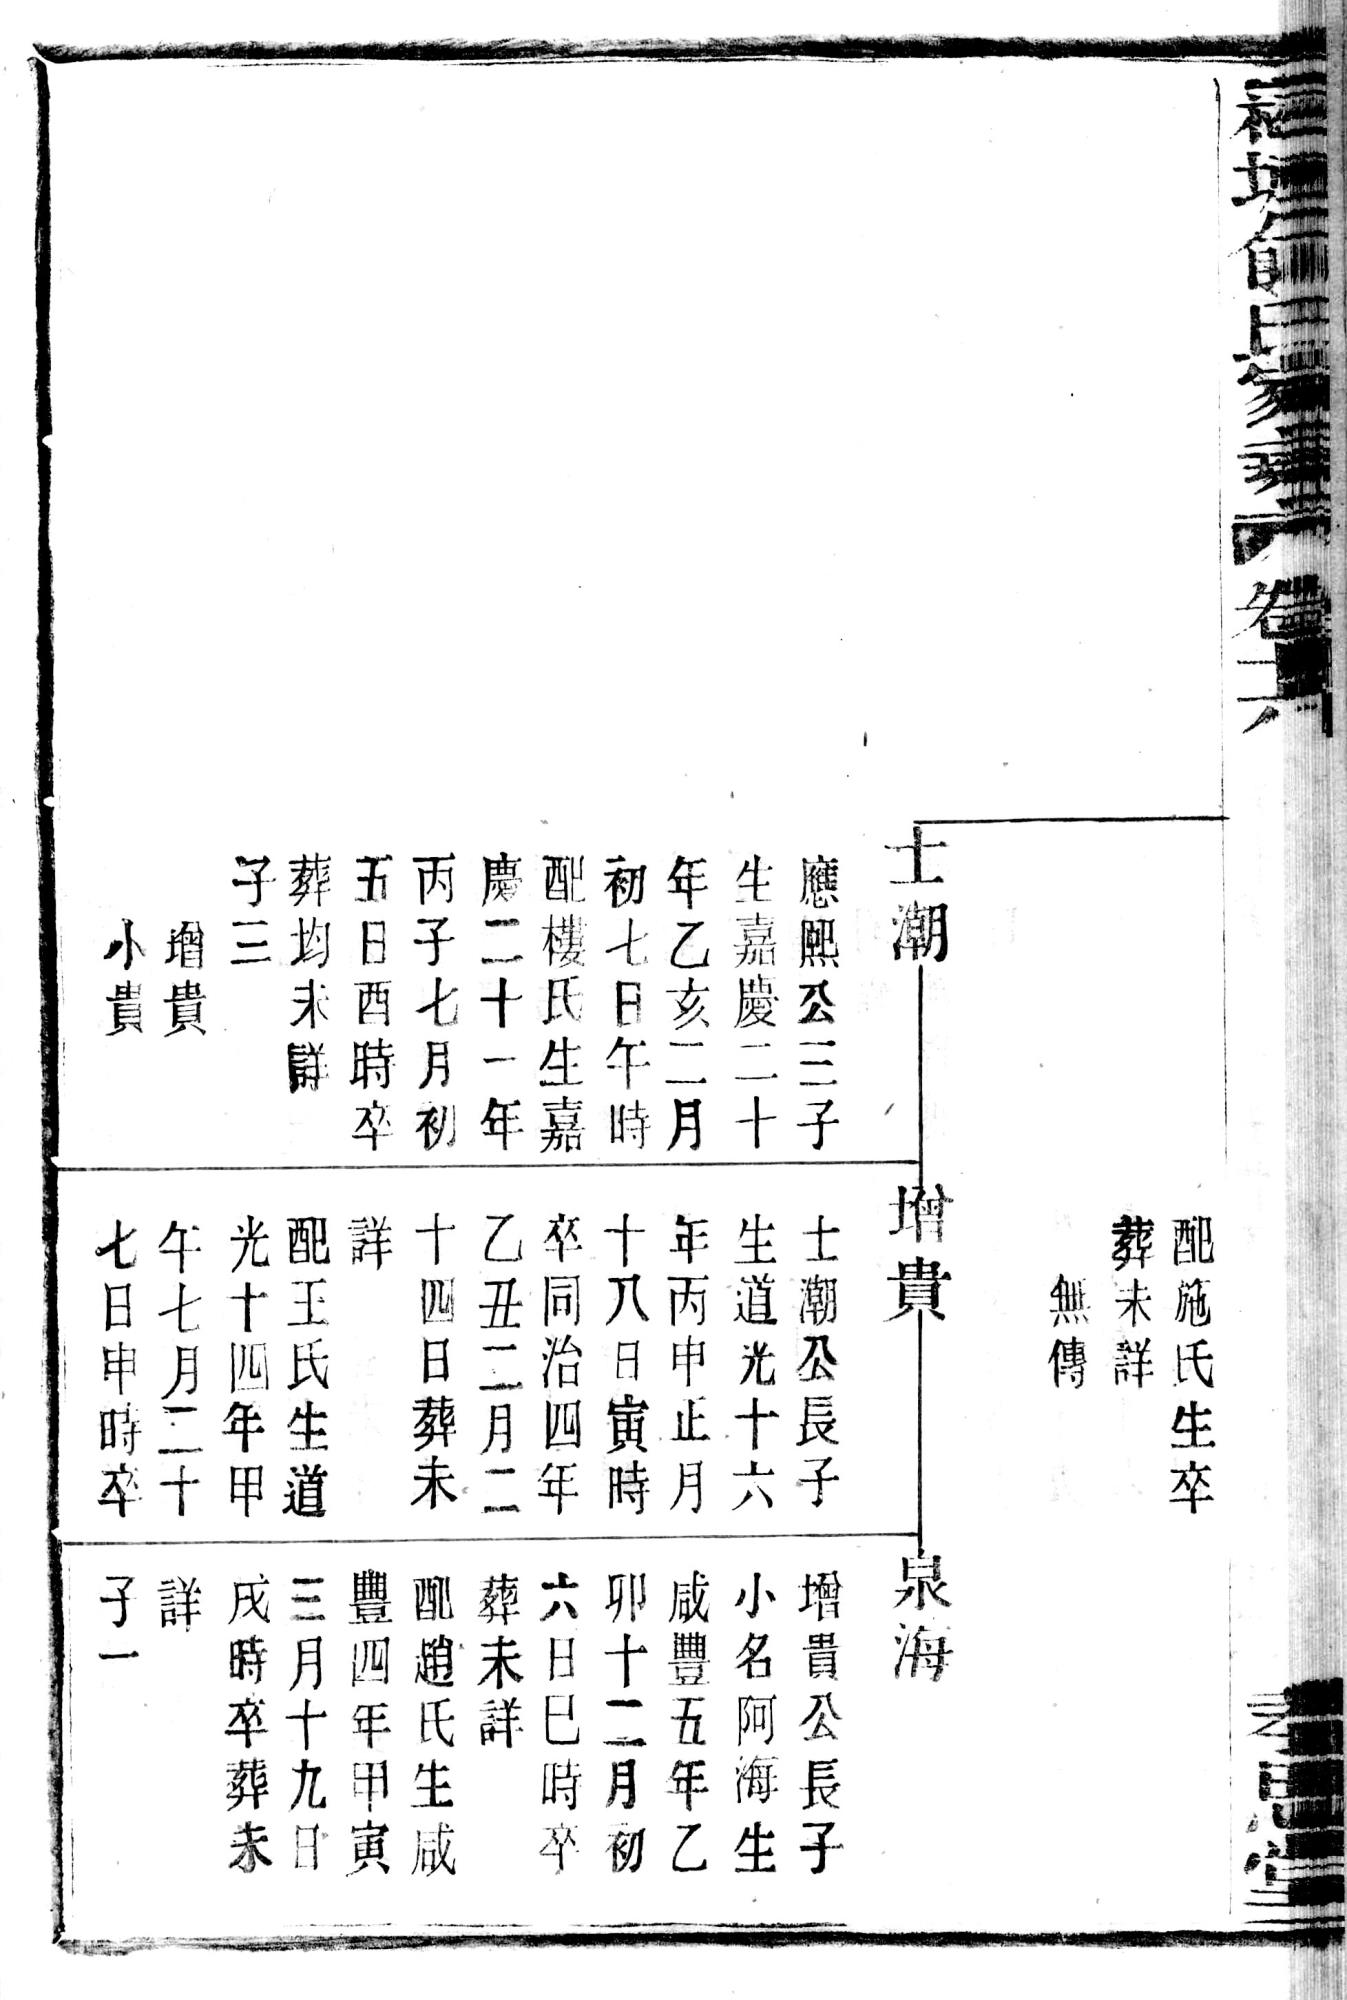 氏家
卷六
孝思堂
配施氏生卒
葬未詳
無傳
士潮
應熙公三子
生嘉慶二十
年乙亥二月
初七日午時
配樓氏生嘉
慶二十一年
丙子七月初
五日酉時卒
葬均未詳
子三
增貴
小貴
增貴
士潮公長子
生道光十六
年丙申正月
十八日寅時
卒同治四年
乙丑二月二
十四日葬未
詳
配王氏生道
光十四年甲
午七月二十
七日申時卒
泉海
增貴公長子
小名阿海生
咸豐五年乙
卯十二月初
六日巳時卒
葬未詳
配趙氏生咸
豐四年甲寅
三月十九日
戌時卒葬未
詳
子一